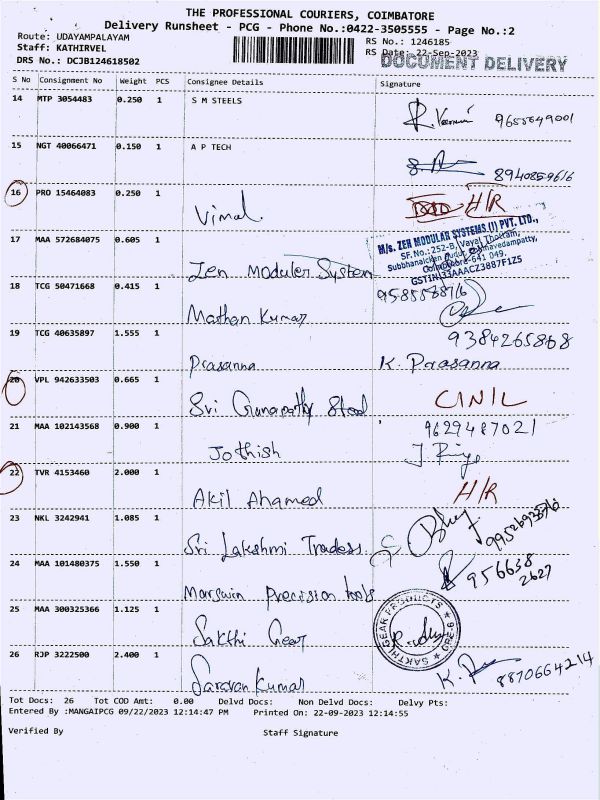 THE PROFESSIONAL COURIERS, COIMBATORE
Delivery Runsheet - PCG - Phone No.:0422-3505555 - Page No.:2
Route: UDAYAMPALAYAM
Staff: KATHIRVEL
DRS No.: DCJB124618502
RS No.: 1246185
RS Date: 22-Sep-2023
DOCUMENT DELIVERY
S No Consignment No Weight PCS Consignee Details Signature
14 MTP 3054483 0.250 1 S M STEELS
9655549001
15 NGT 40066471 0.150 1 A P TECH
8940859616
16 PRO 15464083 0.250 1 Vimal H/R
17 MAA 572684075 0.605 1 Zen Moduler System
M/s. ZEN MODULAR SYSTEMS (I) PVT. LTD.,
SF.No.:252-B, Vayal Thottam,
Coimbatore-641 049.
GSTIN:33AAACZ3887F1Z5
18 TCG 50471668 0.415 1 Mathan Kumar
19 TCG 40635897 1.555 1 Prasanna K. Prasanna
9384265868
20 VPL 942633503 0.665 1 Sri Ganapathy Steel C/N/L
21 MAA 102143568 0.900 1 Jothish
9629487021
22 TVR 4153460 2.000 1 Akil Ahamed H/R
23 NKL 3242941 1.085 1 Sri Lakshmi Traders
24 MAA 101480375 1.550 1 Marswin Precision tools
956638
2627
25 MAA 300325366 1.125 1 Sakthi Gear
SAKTHI GEAR PRODUCTS
26 RJP 3222500 2.400 1 Saravan Kumar
8870664214
Tot Docs: 26 Tot COD Amt: 0.00 Delvd Docs: Non Delvd Docs: Delvy Pts:
Entered By :MANGAIPCG 09/22/2023 12:14:47 PM Printed On: 22-09-2023 12:14:55
Verified By Staff Signature